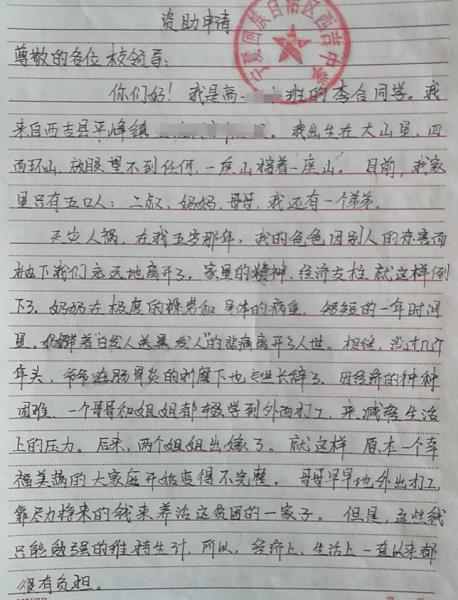 资助申请
宁夏回族自治区西吉中学
尊敬的各位校领导：
你们好！我是高 班的李合同学。我
来自西吉县平峰镇 。我出生在大山里，四
面环山，放眼望不到任何，一座山挨着一座山。目前，我家
里只有五口人：二叔，妈妈，哥哥，我还有一个弟弟。
天灾人祸，在我五岁那年，我的爸爸因别人的杀害而
抛下我们永远地离开了，家里的精神、经济支柱就这样倒
下了，奶奶在极度的 和身体的病重，短短的一年时间
里，奶奶带着“白发人送黑发人”的悲痛离开了人世。相继，没过几个
年头，爷爷在肠胃炎的折磨下也与世长辞了。因经济的种种
困难，一个哥哥和姐姐都辍学到外面打工，来减轻生活
上的压力。后来，两个姐姐出嫁了。就这样，原本一个幸
福美满的大家庭开始变得不完整。哥哥早早地外出打工，
靠尽力挣来的钱来养活这贫困的一家子。但是，这些钱
只能勉强的维持生计，所以，经济上，生活上一直以来都
很有负担。